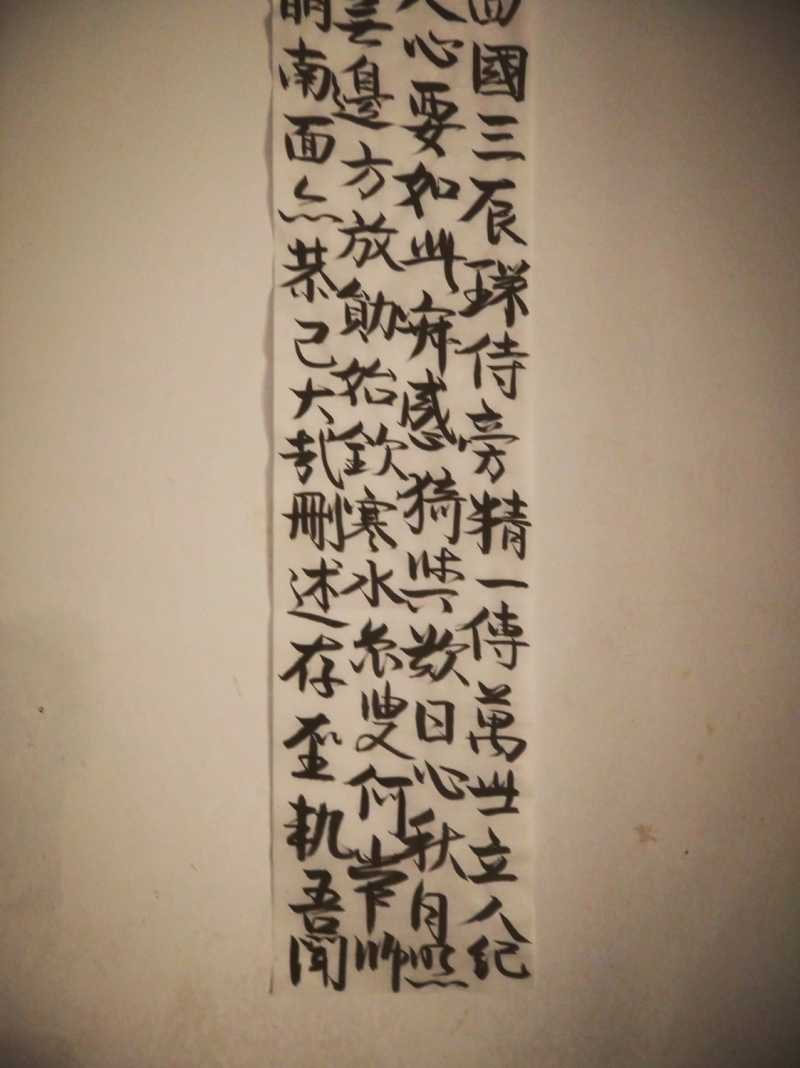 四國三辰環侍旁精一傳萬世立人紀
人心要如此寂感猗歟歎日心秋月照
無邊方放勛始欽寒水魯叟何常師
明南面亦恭己大哉刪述存聖軌吾聞